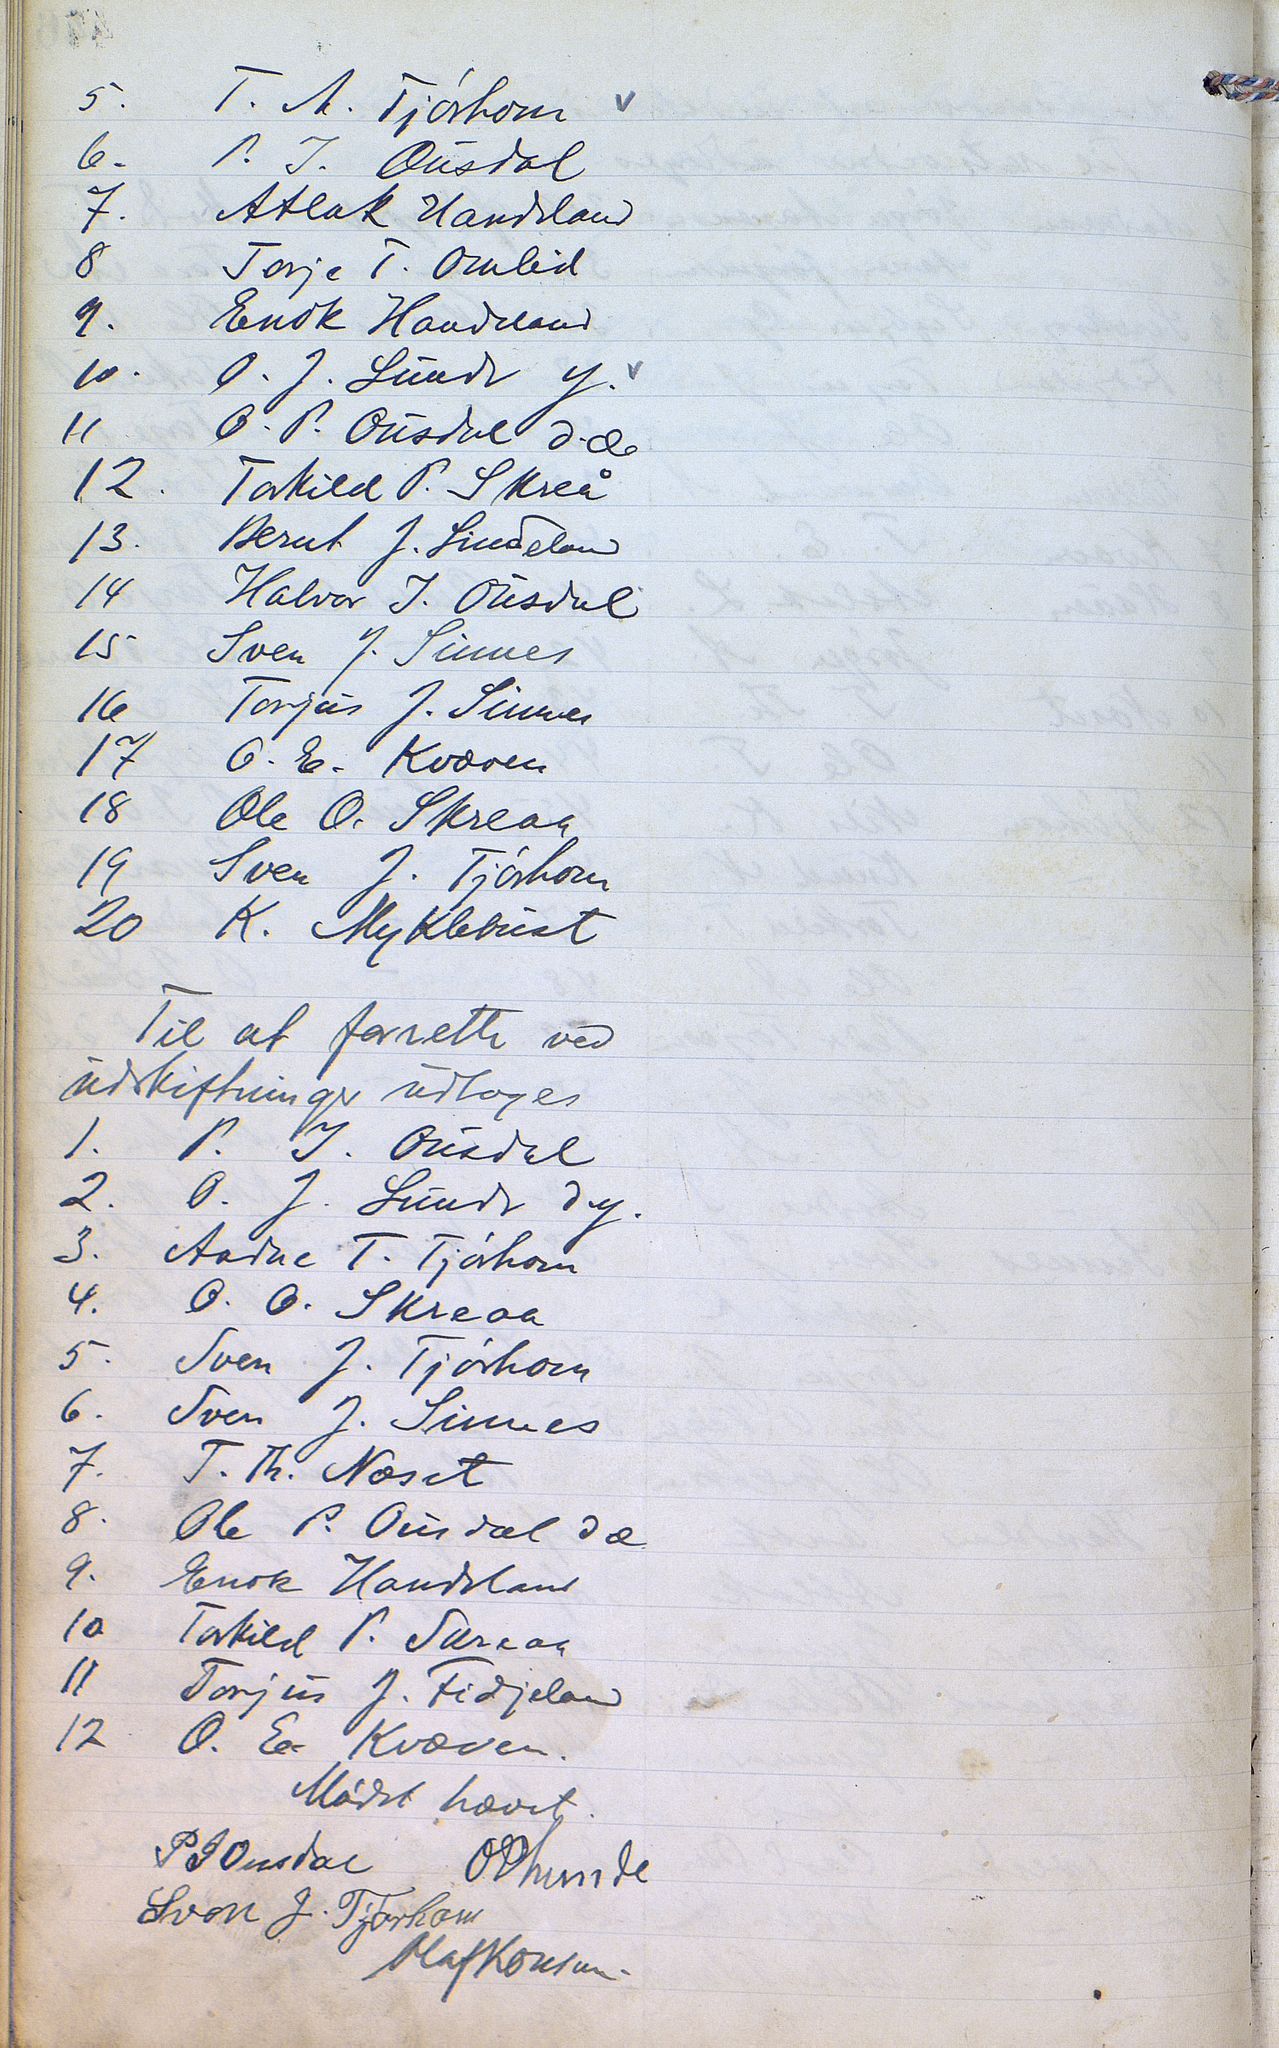 5. T. A. Tjórhom v
6. P. J. Ousdal
7. Atlak Handeland
8 Torje T. Omlid
9. Enok Handeland
10. O. J. Lunde y. v
11 O. P. Ousdal d.æ
12. Torkild P. Skreå
13. Bernt J. Sindeland
14 Halvor J. Ousdal
15 Sven J. Sinnes
16 Torjus J. Sinnes
17 O. E. Kvæven
18 Ole O. Skreaa
19 Sven J. Tjórhom
20 K. Myklebust
Til at forrette ved
udskiftninger udtoges
1. P. J. Ousdal
2. O. J. Lunde d.y.
3. Aadne T. Tjórhom
4. O. O. Skreaa
5. Sven J. Tjórhom
6. Sven J. Sinnes
7. T. Th. Næset
8. Ole P. Ousdal d æ
9. Enok Handeland
10 Torkild P. Skreaa
11 Torjus J. Fidjeland
12 O. E. Kvæven.
Mødet hævet.
P J Ousdal O P Lunde
Sven J. Tjórhom
Olaf